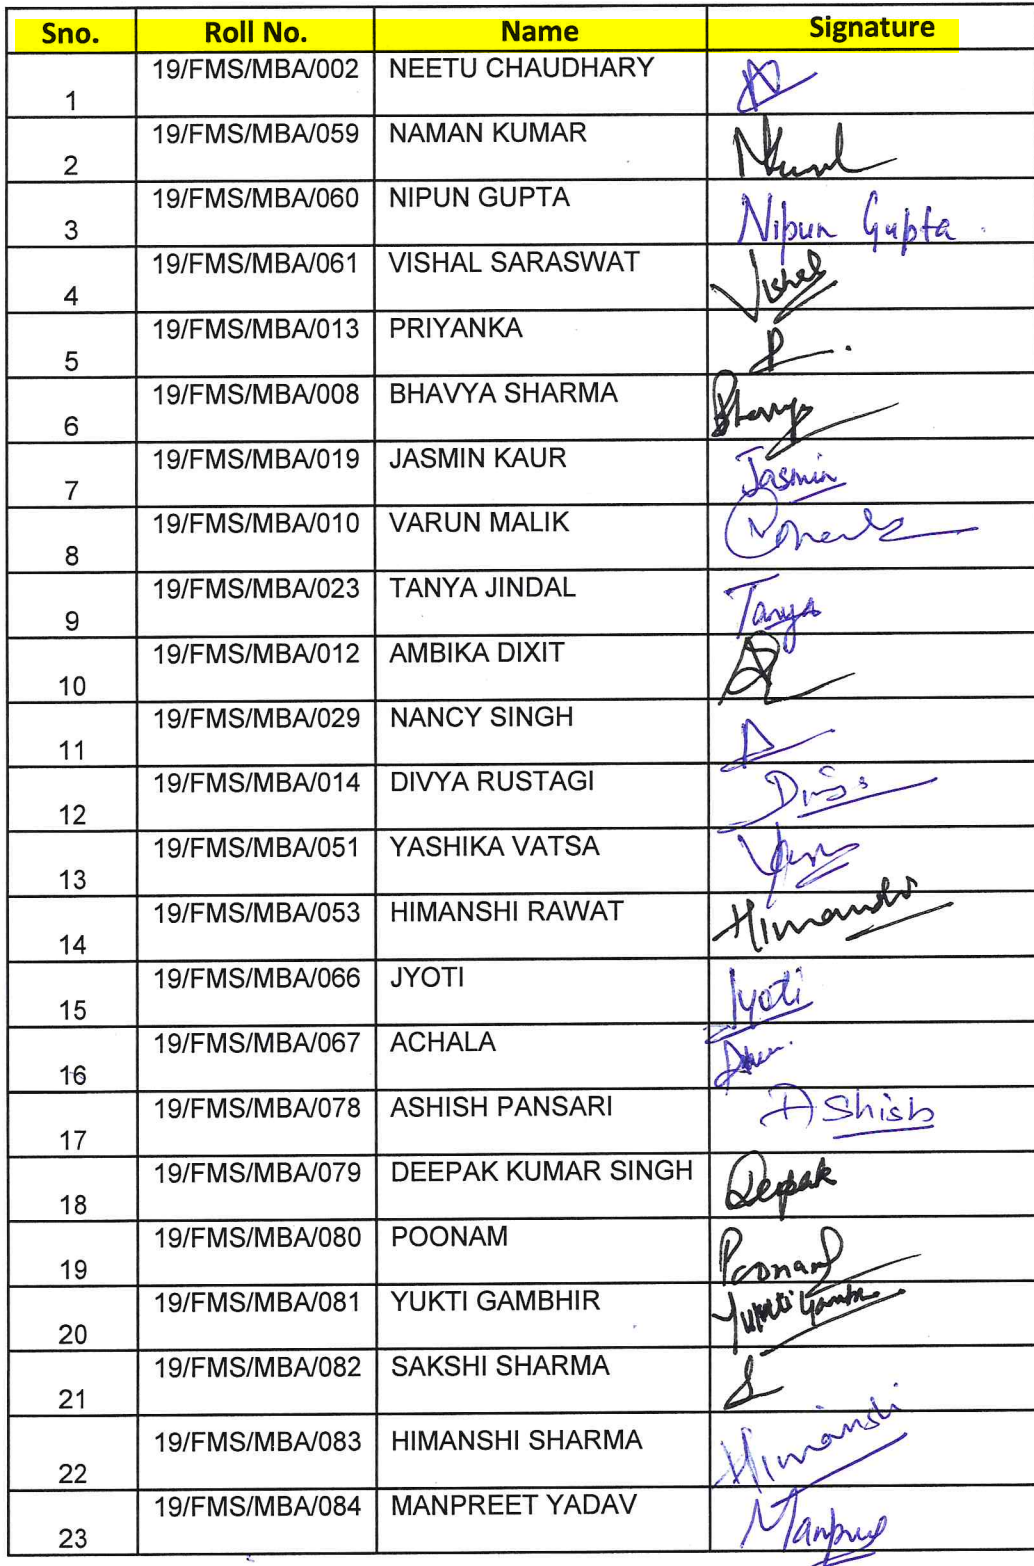 Sno. Roll No. Name Signature
1 19/FMS/MBA/002 NEETU CHAUDHARY
2 19/FMS/MBA/059 NAMAN KUMAR
3 19/FMS/MBA/060 NIPUN GUPTA Nipun Gupta
4 19/FMS/MBA/061 VISHAL SARASWAT Vishal
5 19/FMS/MBA/013 PRIYANKA P
6 19/FMS/MBA/008 BHAVYA SHARMA Bhavya
7 19/FMS/MBA/019 JASMIN KAUR Jasmin
8 19/FMS/MBA/010 VARUN MALIK
9 19/FMS/MBA/023 TANYA JINDAL Tanya
10 19/FMS/MBA/012 AMBIKA DIXIT
11 19/FMS/MBA/029 NANCY SINGH
12 19/FMS/MBA/014 DIVYA RUSTAGI
13 19/FMS/MBA/051 YASHIKA VATSA
14 19/FMS/MBA/053 HIMANSHI RAWAT Himanshi
15 19/FMS/MBA/066 JYOTI Jyoti
16 19/FMS/MBA/067 ACHALA
17 19/FMS/MBA/078 ASHISH PANSARI AShish
18 19/FMS/MBA/079 DEEPAK KUMAR SINGH Deepak
19 19/FMS/MBA/080 POONAM Poonam
20 19/FMS/MBA/081 YUKTI GAMBHIR Yukti
21 19/FMS/MBA/082 SAKSHI SHARMA S
22 19/FMS/MBA/083 HIMANSHI SHARMA Himanshi
23 19/FMS/MBA/084 MANPREET YADAV Manpreet